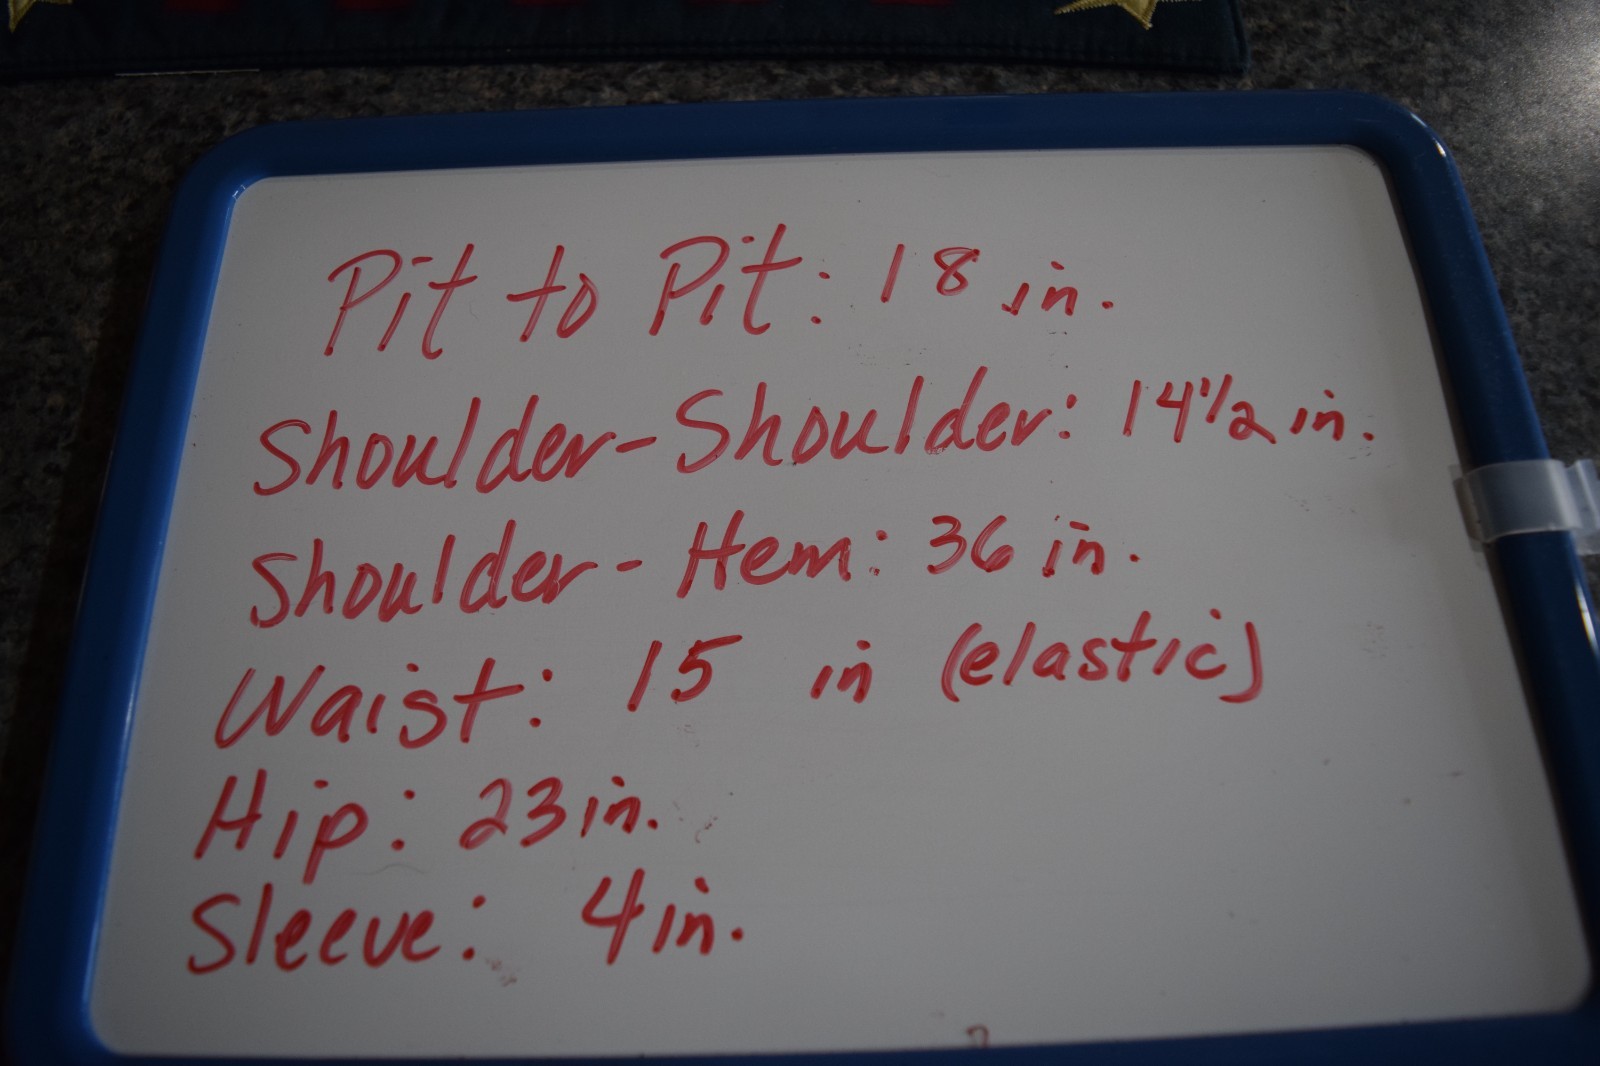 Pit to Pit: 18 in.
Shoulder-Shoulder: 14 1/2 in.
Shoulder-Hem: 36 in.
Waist: 15 in (elastic)
Hip: 23 in.
Sleeve: 4 in.